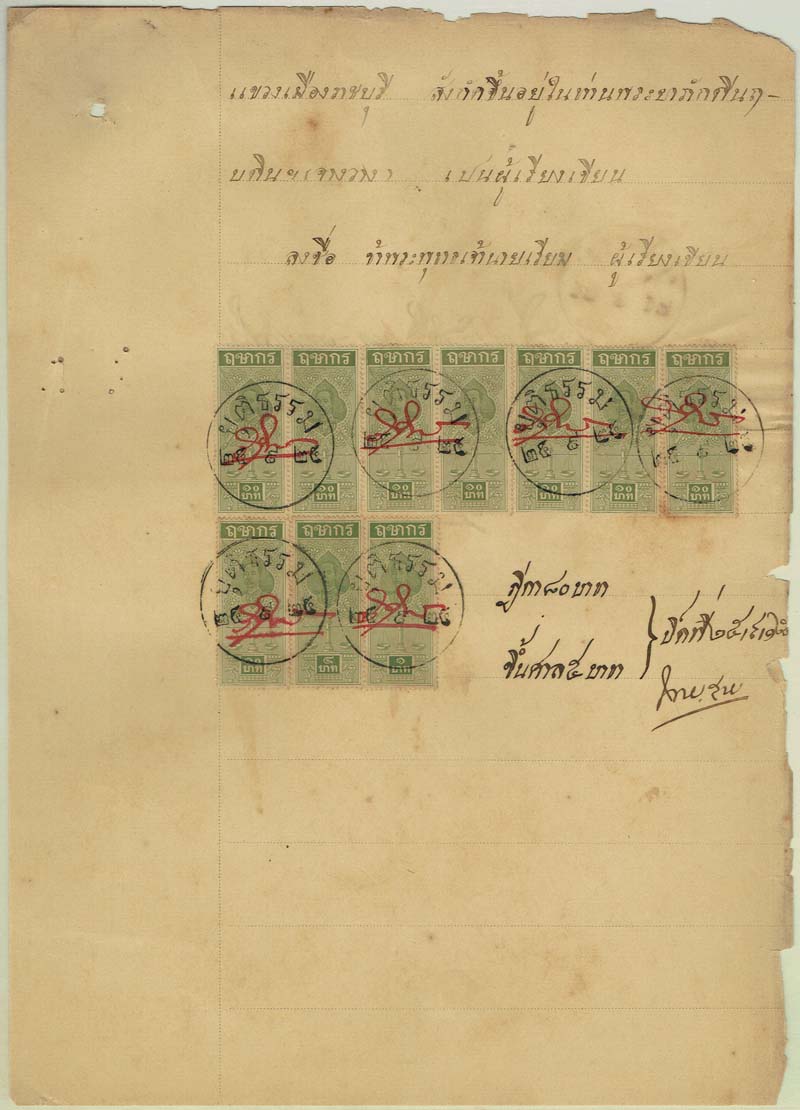 แขวงเมืองราชบุรี สังกัดขึ้นอยู่ในท่านพระยาภักดีนฤ-
บดินฯ (จางวาง) เปนผู้เรียงเขียน
ลงชื่อ ข้าพระพุทธเจ้านายเรียม ผู้เรียงเขียน
ฤชากร ฤชากร ฤชากร ฤชากร ฤชากร ฤชากร ฤชากร
ยุติธรรม ยุติธรรม ยุติธรรม ยุติธรรม
๒๕ ๕ ๒๕
๑๐ บาท ๑๐ บาท ๑๐ บาท ๑๐ บาท ๑๐ บาท ๑๐ บาท ๑๐ บาท
ฤชากร ฤชากร ฤชากร
ยุติธรรม ยุติธรรม
๒๕ ๕ ๒๕
๑๐ บาท ๕ บาท ๑ บาท
ฎีกา ๘๐ บาท
ขึ้นศาล ๕ บาท